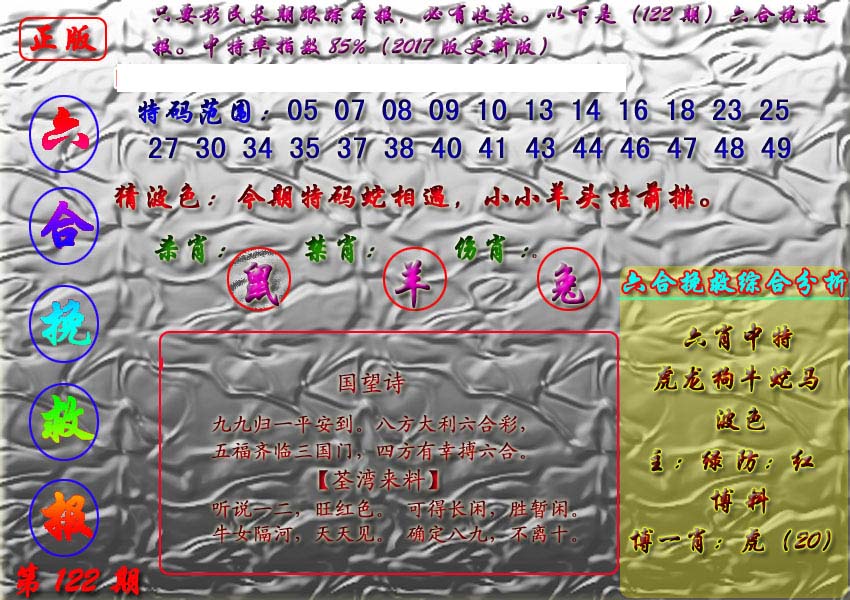 只要彩民长期跟踪本报，必有收获。以下是（122期）六合挽救
报。中特率指数85%（2017版更新版）
正版
特码范围：05 07 08 09 10 13 14 16 18 23 25
27 30 34 35 37 38 40 41 43 44 46 47 48 49
猜波色：今期特码蛇相遇，小小羊头挂前排。
杀肖：鼠 禁肖：羊 伤肖：兔。
六合挽救报
第122期
国望诗
九九归一平安到。八方大利六合彩，
五福齐临三国门，四方有幸搏六合。
【荃湾来料】
听说一二，旺红色。 可得长闲，胜暂闲。
牛女隔河，天天见。 确定八九，不离十。
六合挽救综合分析
六肖中特
虎龙狗牛蛇马
波色
主：绿防：红
博料
博一肖：虎（20）